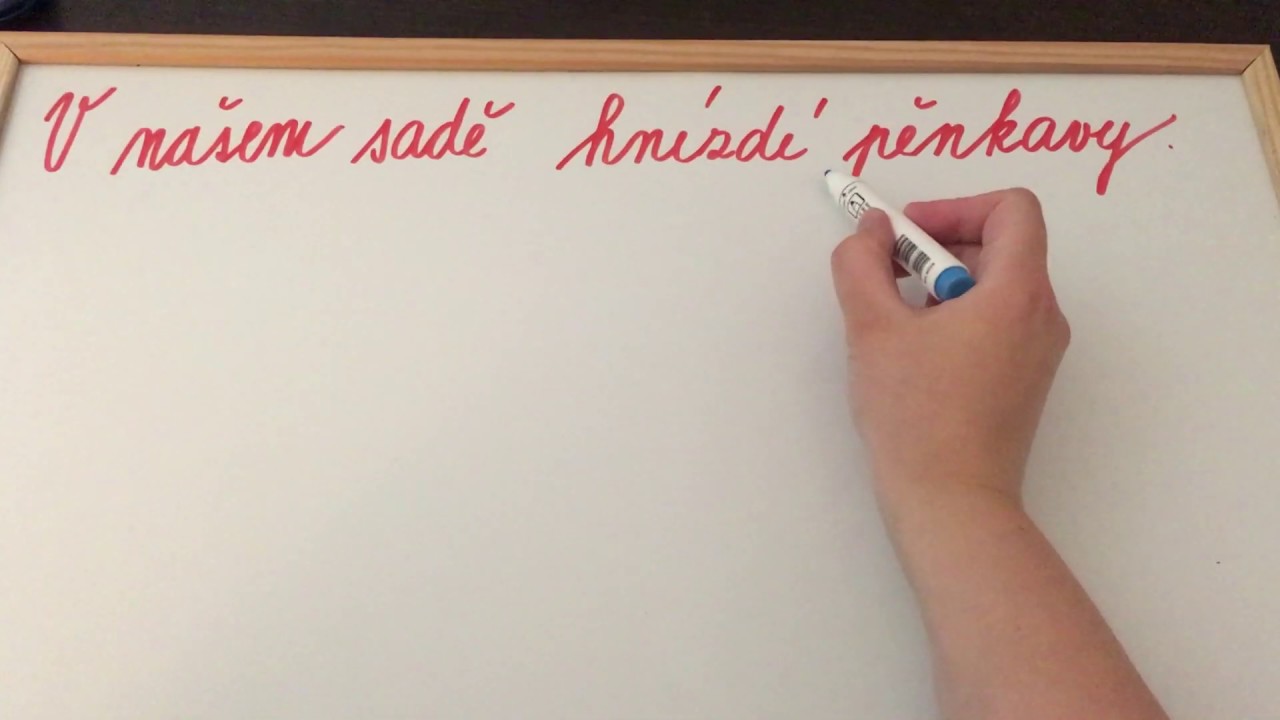 V našem sadě hnízdí pěnkavy.